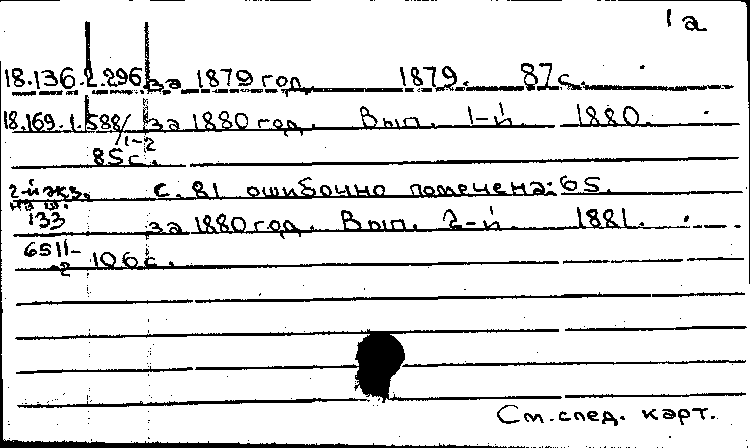 1а
18.136.2.296 за 1879 год. 1879. 87 с.
18.169.1.588/1-2 за 1880 год. Вып. 1-й. 1880.
85 с.
2-й экз. с. 81 ошибочно помечена: 65.
на ш.
133 за 1880 год. Вып. 2-й. 1881.
6511-2 106 с.
См. след. карт.